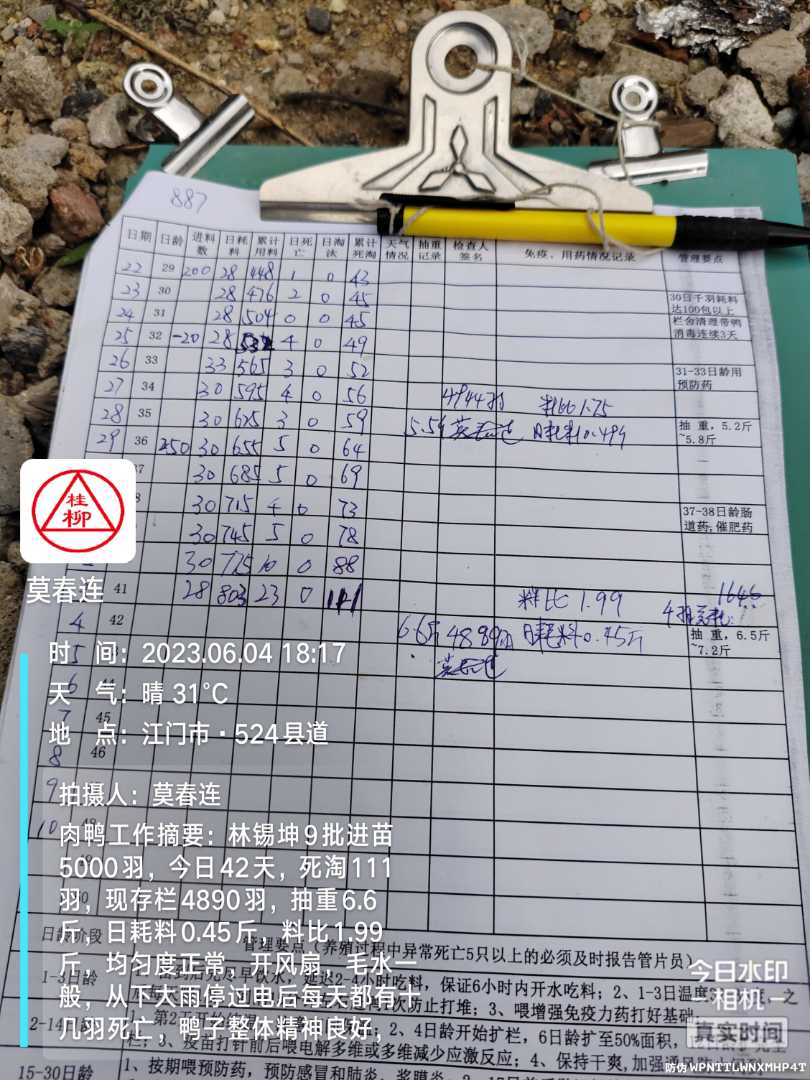 887
日期 日龄 进料数 日耗料 累计用料 日死亡 日淘汰 累计死淘 天气情况 抽重记录 检查人签名 免疫、用药情况记录 管理要点
22 29 200 28 448 1 0 43
23 30 28 476 2 0 45 30日千羽耗料达100包以上
24 31 28 504 0 0 45 栏舍清理带鸭消毒连续3天
25 32 -20 28 532 4 0 49
26 33 33 565 3 0 52 31-33日龄用预防药
27 34 30 595 4 0 56 4944羽 料比1.75
28 35 30 625 3 0 59 5.5斤 莫春连 日耗料0.49斤 抽重,5.2斤~5.8斤
29 36 250 30 655 5 0 64
37 30 685 5 0 69
30 715 4 0 73 37-38日龄肠道药,催肥药
30 745 5 0 78
30 775 10 0 88
41 28 803 23 0 111 料比1.99 1646
4 42 6.6斤 4889羽 日耗料0.45斤 抽重,6.5斤~7.2斤
莫春连
5
6
7 45
8 46
9
10
桂柳
莫春连
时 间:2023.06.04 18:17
天 气:晴 31℃
地 点:江门市·524县道
拍摄人:莫春连
肉鸭工作摘要:林锡坤9批进苗
5000羽,今日42天,死淘111
羽,现存栏4890羽,抽重6.6
斤,日耗料0.45斤,料比1.99
斤,均匀度正常,开风扇,毛水一
般,从下大雨停过电后每天都有十
几羽死亡,鸭子整体精神良好,
日龄阶段 管理要点(养殖过程中异常死亡5只以上的必须及时报告管片员)
1-3日龄 2-4小时吃料,保证6小时内开水吃料;2、1-3日温度
防止打堆;3、喂增强免疫力药打好基础
2-14日龄 2、4日龄开始扩栏,6日龄扩至50%面积,
疫苗打针前后喂电解多维或多维减少应激反应;4、保持干爽,加强通风
15-30日龄 1、按期喂预防药,预防感冒和肺炎、浆膜炎
今日水印
相机
真实时间
防伪 WPNTTLWNXMHP4T